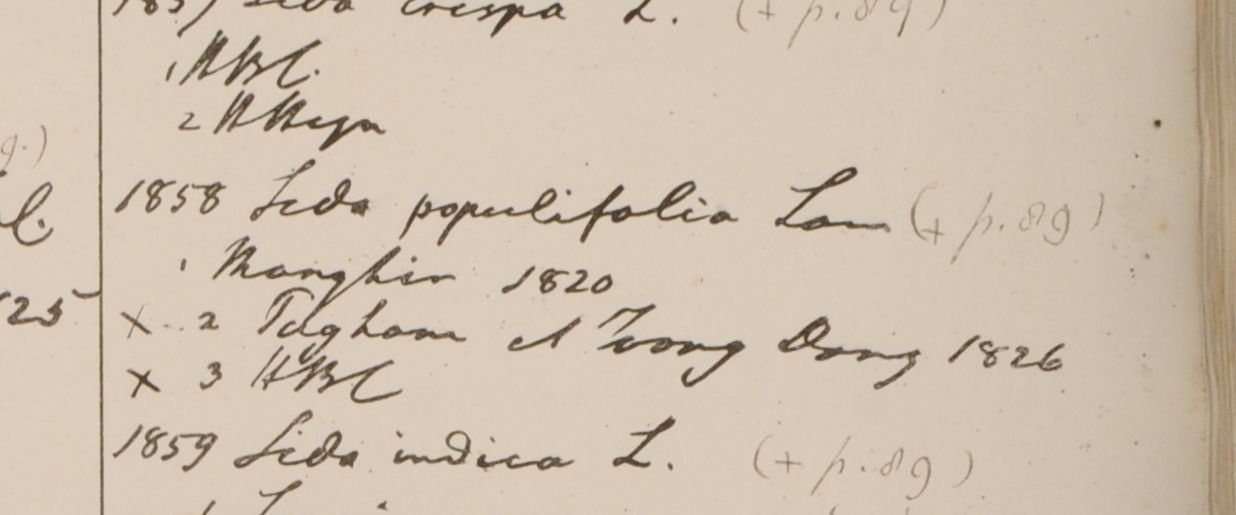 1857 Sida crispa L. (+ p. 89)
1 HBC.
2 H Heyn
1858 Sida populifolia Lam (+ p. 89)
1 Monghir 1820
x 2 Toong Dong 1826
x 3 HBC
1859 Sida indica L. (+ p. 89)
g.)
l.
25